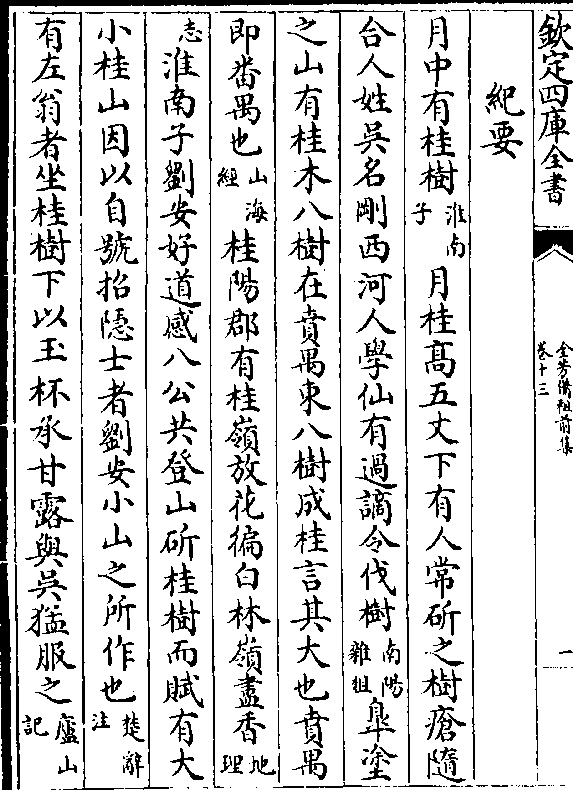 欽定四庫全書
全芳備祖前集
卷十三
一
紀要
月中有桂樹淮南子 月桂高五丈下有人常斫之樹瘡隨
合人姓吳名剛西河人學仙有過謫令伐樹南陽雜俎 臯塗
之山有桂木八樹在賁禺東八樹成桂言其大也賁禺
即畨禺也山海經 桂陽郡有桂嶺放花徧白林嶺盡香地理
志淮南子劉安好道感八公共登山斫桂樹而賦有大
小桂山因以自號招隠士者劉安小山之所作也楚辭注
有左翁者坐桂樹下以玉杯承甘露與吳猛服之廬山記